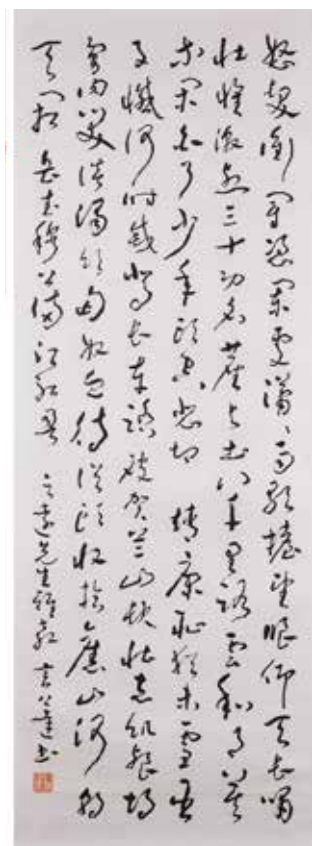 怒髮衝冠憑闌處瀟瀟雨歇擡望眼仰天長嘯
壯懷激烈三十功名塵與土八千里路雲和月莫
等閒白了少年頭空悲切 靖康恥猶未雪臣
子憾何時滅駕長車踏破賀蘭山缺壯志飢餐胡
虜肉笑談渴飲匈奴血待從頭收拾舊山河朝
天闕 岳武穆公滿江紅 先生雅 書